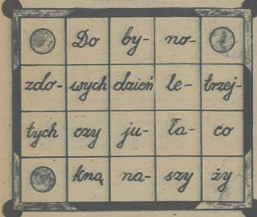 Do by- no-
zdo- wych dzień le- trzej-
tych czy ju- ła- co
kną na- szy ży